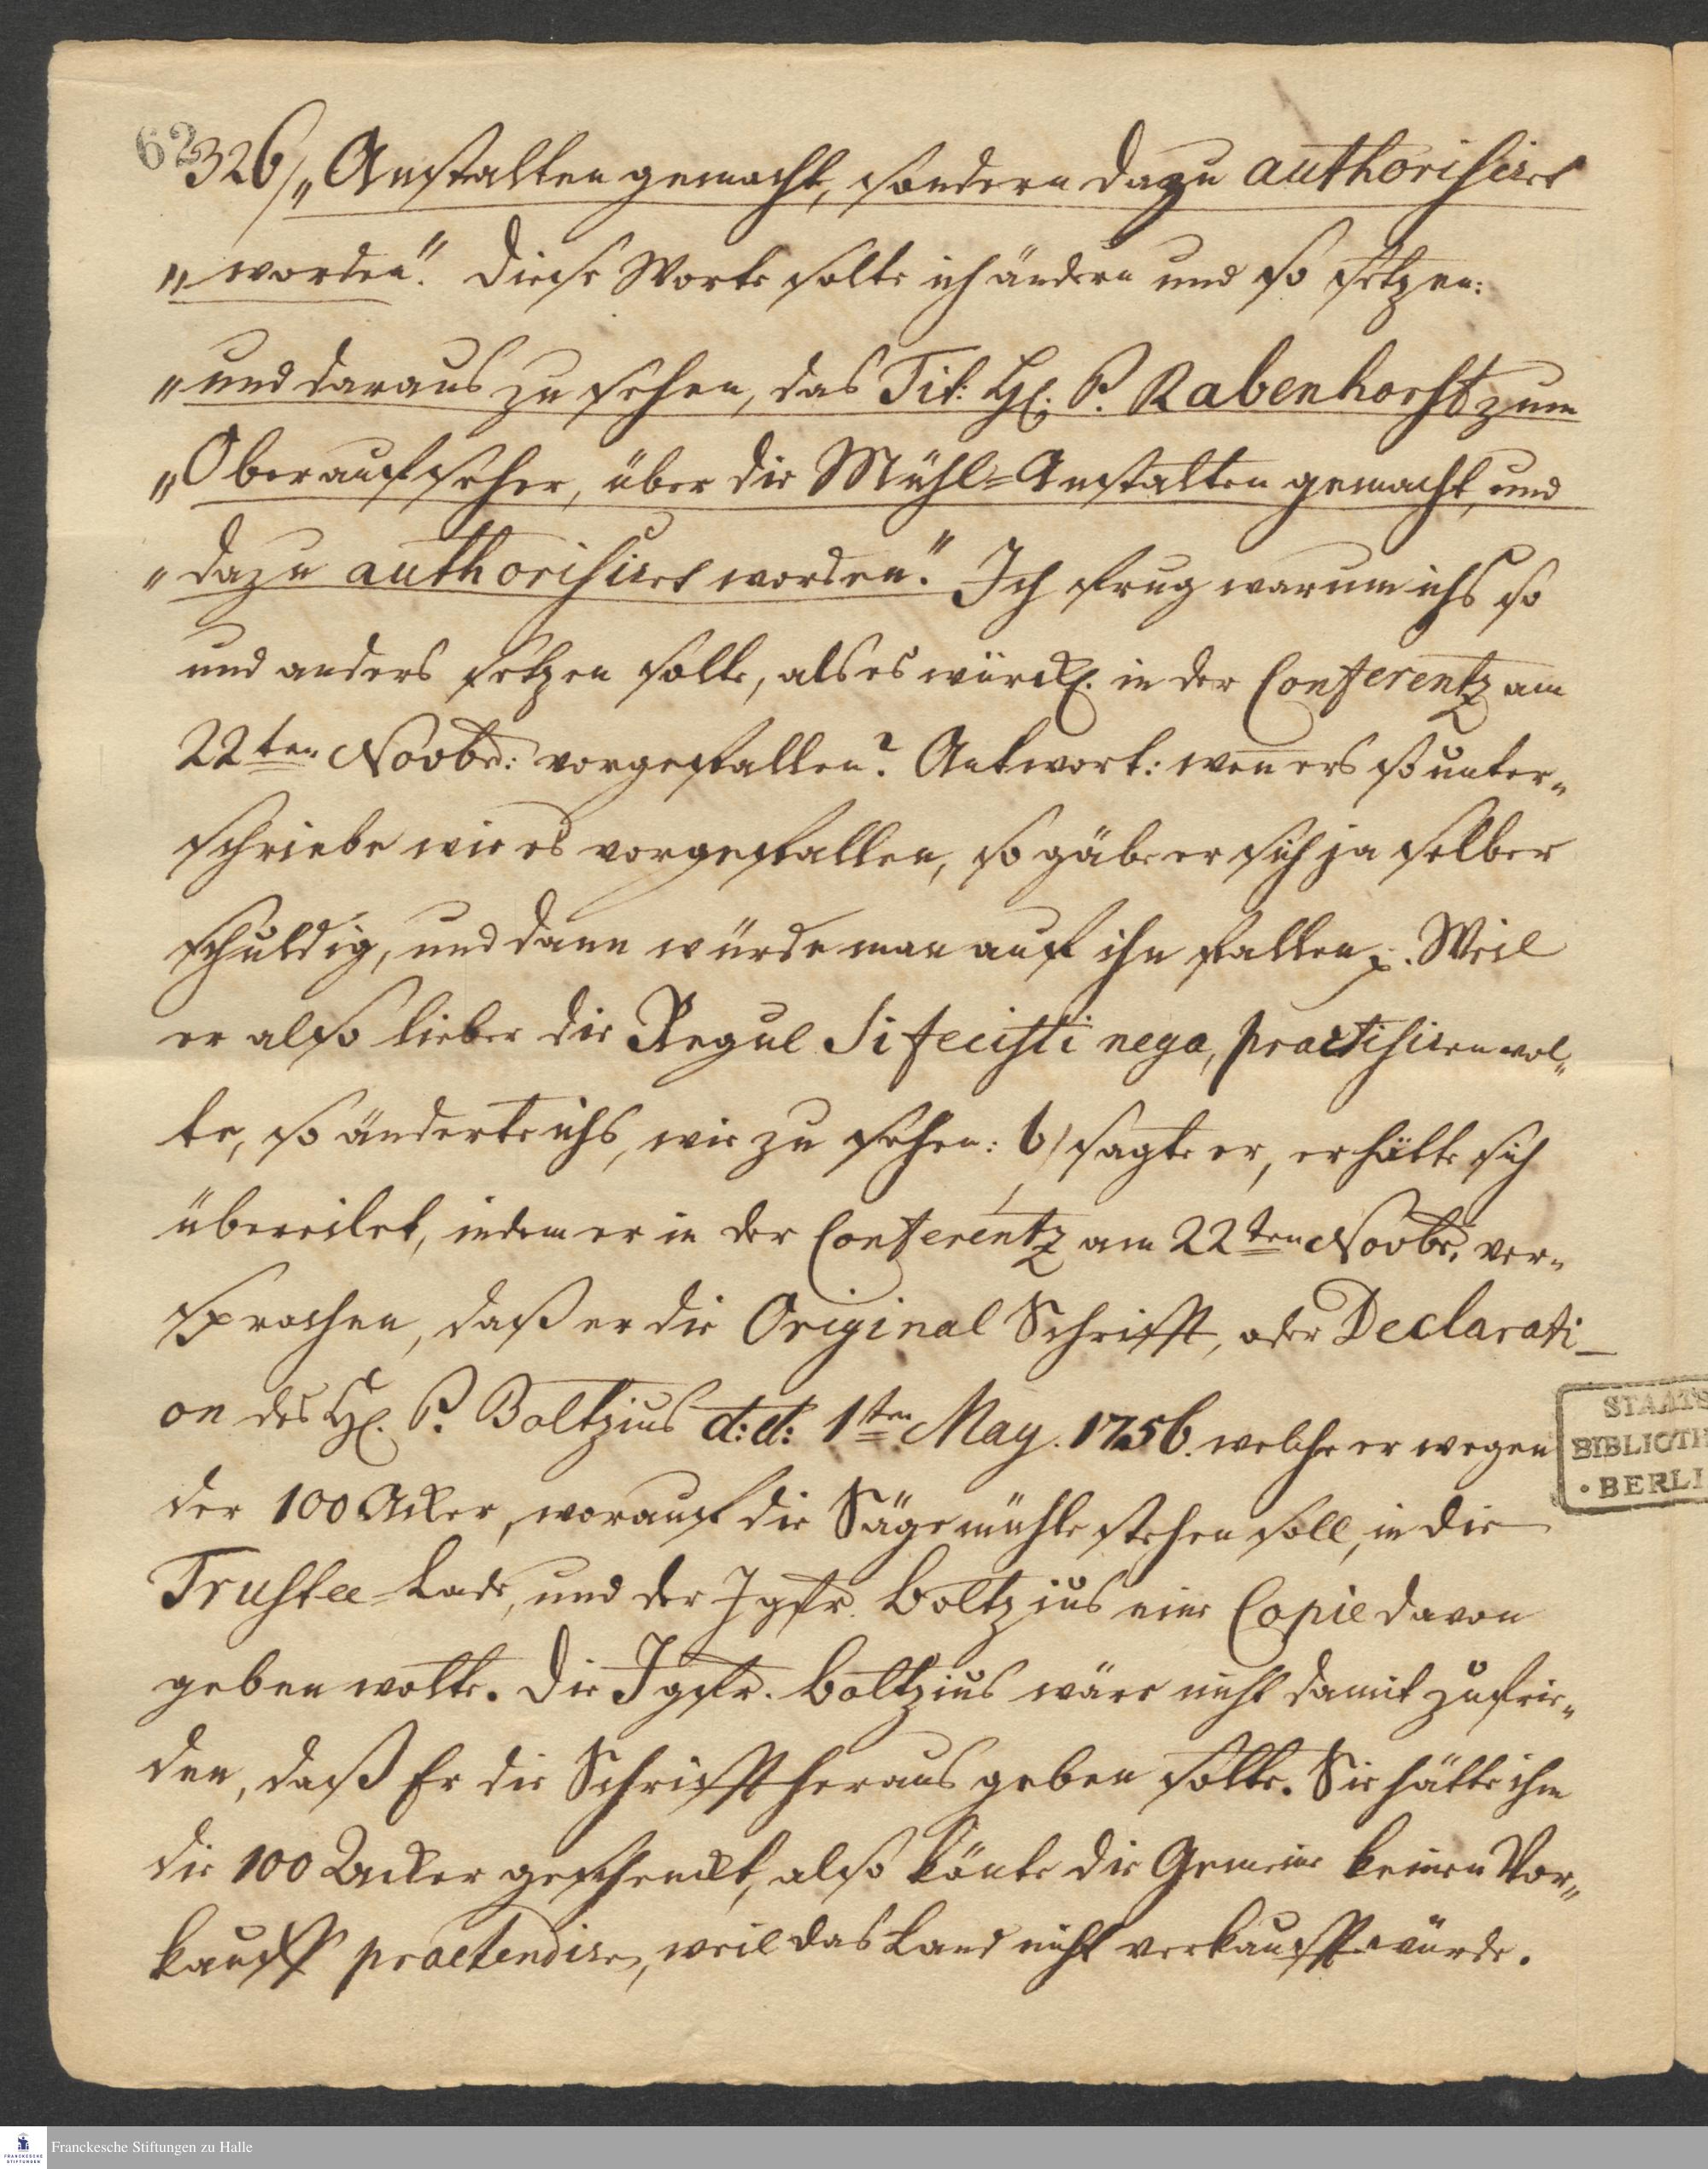 62
326/ „Anstalten gemacht, sondern dazu authorisiret
„worden“. Diese Worte solte ich ändern und so setzen:
„und daraus zu sehen, das Tit: H. P. Rabenhorst zum
„Oberaufseher, über die Mühl-Anstalten gemacht, und
„dazu authorisiret worden.“ Ich frug warum ichs so
und anders setzen solte, als es würckl. in der Conferentz am
22ten Novbr: vorgefallen? Antwort: wen̄ ers so unter„
schriebe wie es vorgefallen, so gäbe er sich ja selber
schuldig, und dann würde man auf ihn fallen p. Weil
er also lieber die Regul Si fecisti nega, practisiren wol„
te, so änderte ichs, wie zu sehen: b/ sagte er, er hätte sich
übereilet, indem er in der Conferentz am 22ten Novbr. ver„
sprochen, daß er die Original Schrifft, oder Declarati_
on des H. P. Boltzius d:d: 1ten May. 1756. welche er wegen
der 100 Acker, worauf die Sägemühle stehen soll, in die
Trustee-Lade, und der Jgfr. Boltzius eine Copie davon
geben wolte. Die Jgfr. Boltzius wäre nicht damit zufrie„
den, daß Er die Schrifft heraus geben solte. Sie hätte ihm
die 100 Acker geschenckt, also könte die Gemeine keinen Vor„
kauff praetendiren, weil das Land nicht verkaufft würde.
STAATS
BIBLIOTH
BERLI
Franckesche Stiftungen zu Halle
FRANCKESCHE
STIFTUNGEN